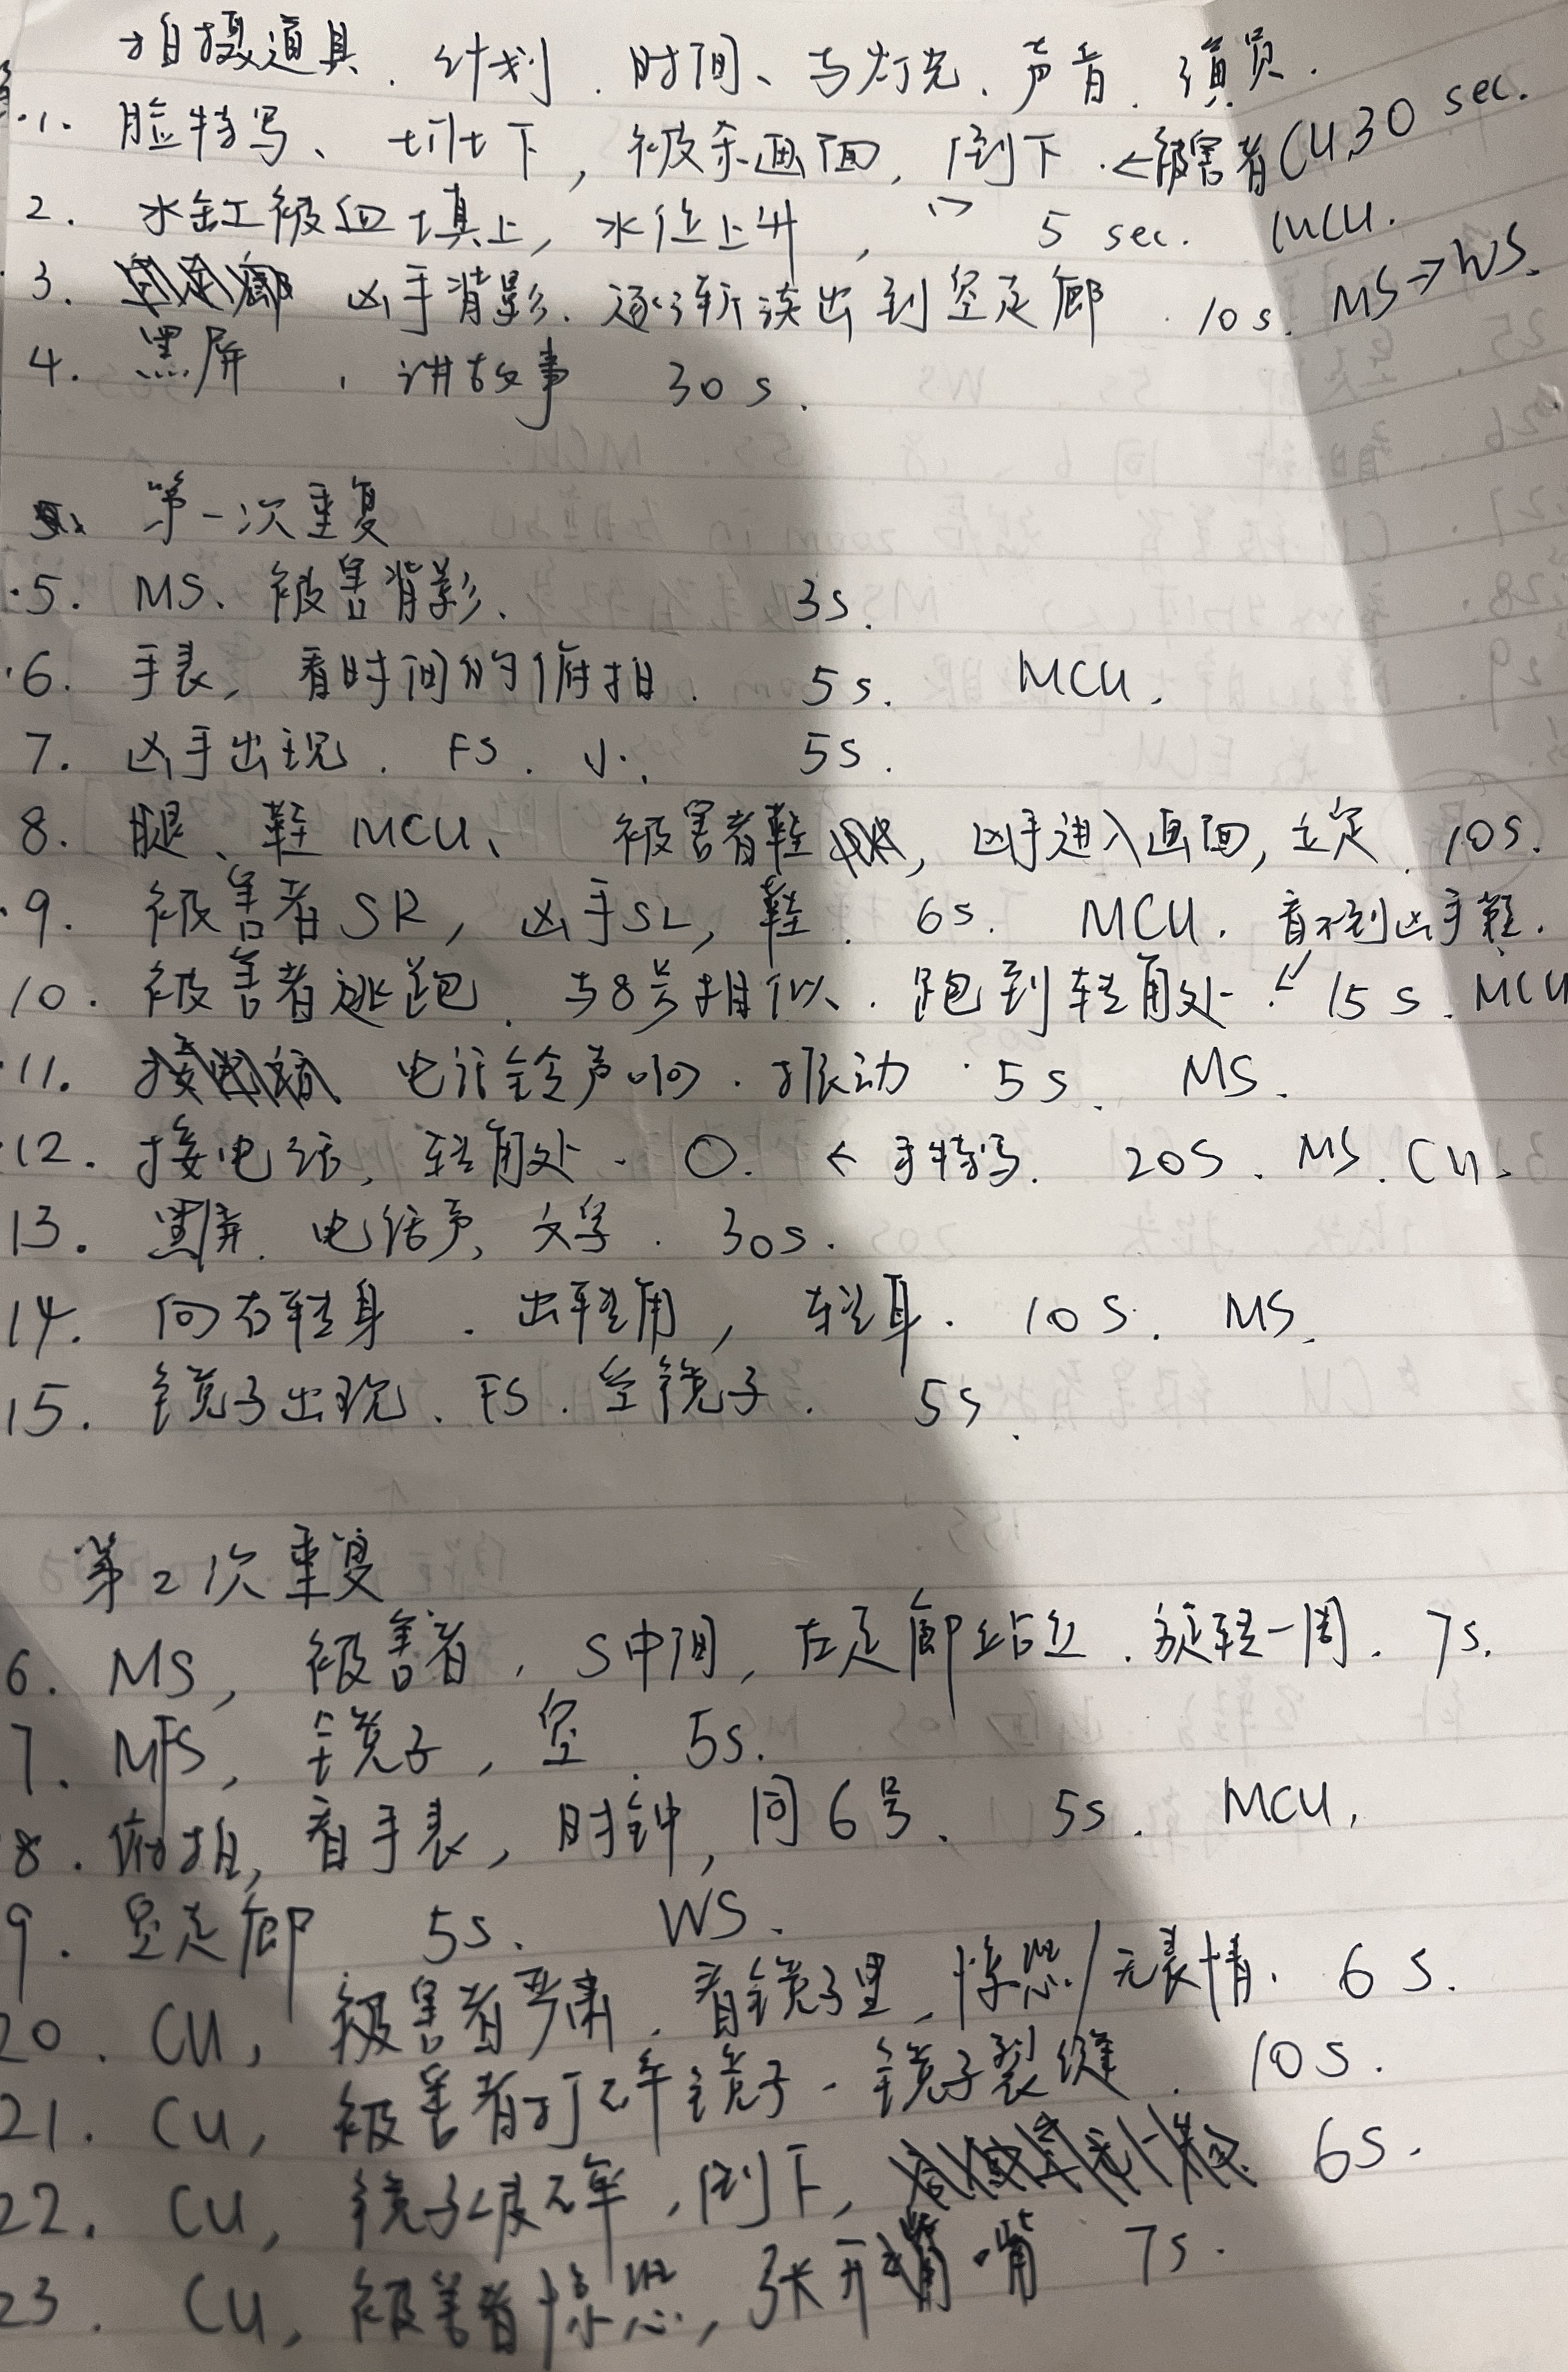 拍摄道具、计划、时间、与灯光、声音、演员.
1. 脸特写、切下, 被杀画面, 倒下.←被害者CU,30 sec.
2. 水缸被血填上, 水位上升, 5 sec. MCU.
3. 凶手背影. 逐渐淡出到空走廊. 10s. MS→WS.
4. 黑屏, 讲故事 30s.
第一次重复
5. MS. 被害背影. 3s.
6. 手表, 看时间的俯拍. 5s. MCU.
7. 凶手出现. FS. 5s.
8. 腿、鞋 MCU、 被害者鞋, 凶手进入画面, 立定. 10s.
9. 被害者SR, 凶手SL, 鞋. 6s. MCU. 看不到凶手鞋.
10. 被害者逃跑. 与8号相似. 跑到转角处. 15s. MCU
11. 电话铃声响. 振动. 5s. MS.
12. 接电话, 转角处. O. ← 手特写. 20s. MS. CU.
13. 黑屏. 电话声, 文字. 30s.
14. 向右转身. 出转角, 转身. 10s. MS.
15. 镜子出现. FS. 空镜子. 5s.
第2次重复
6. MS, 被害者, S中间, 在走廊站立. 旋转一周. 7s.
7. MFS, 镜子, 空. 5s.
8. 俯拍, 看手表, 时钟, 同6号、 5s. MCU,
9. 空走廊 5s. WS.
20. CU, 被害者严肃. 看镜子里, 惊恐/无表情. 6s.
21. CU, 被害者打碎镜子. 镜子裂缝. 10s.
22. CU, 镜子破碎, 倒下, 6s.
23. CU, 被害者惊恐, 张开嘴 7s.